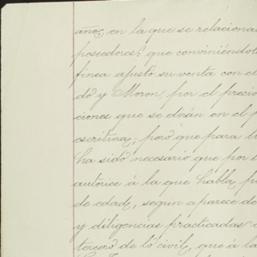 años, en la que se relaciona
poseedores; que conviniéndol
finca ajustó su venta con el
do y Moron, por el precio
ciones que se dirán en el p
escritura; pero que para l
ha sido necesario que por e
autorice á la que habla, p
de edad, según aparece d
y diligencias practicadas
tercero de lo civil, que á la